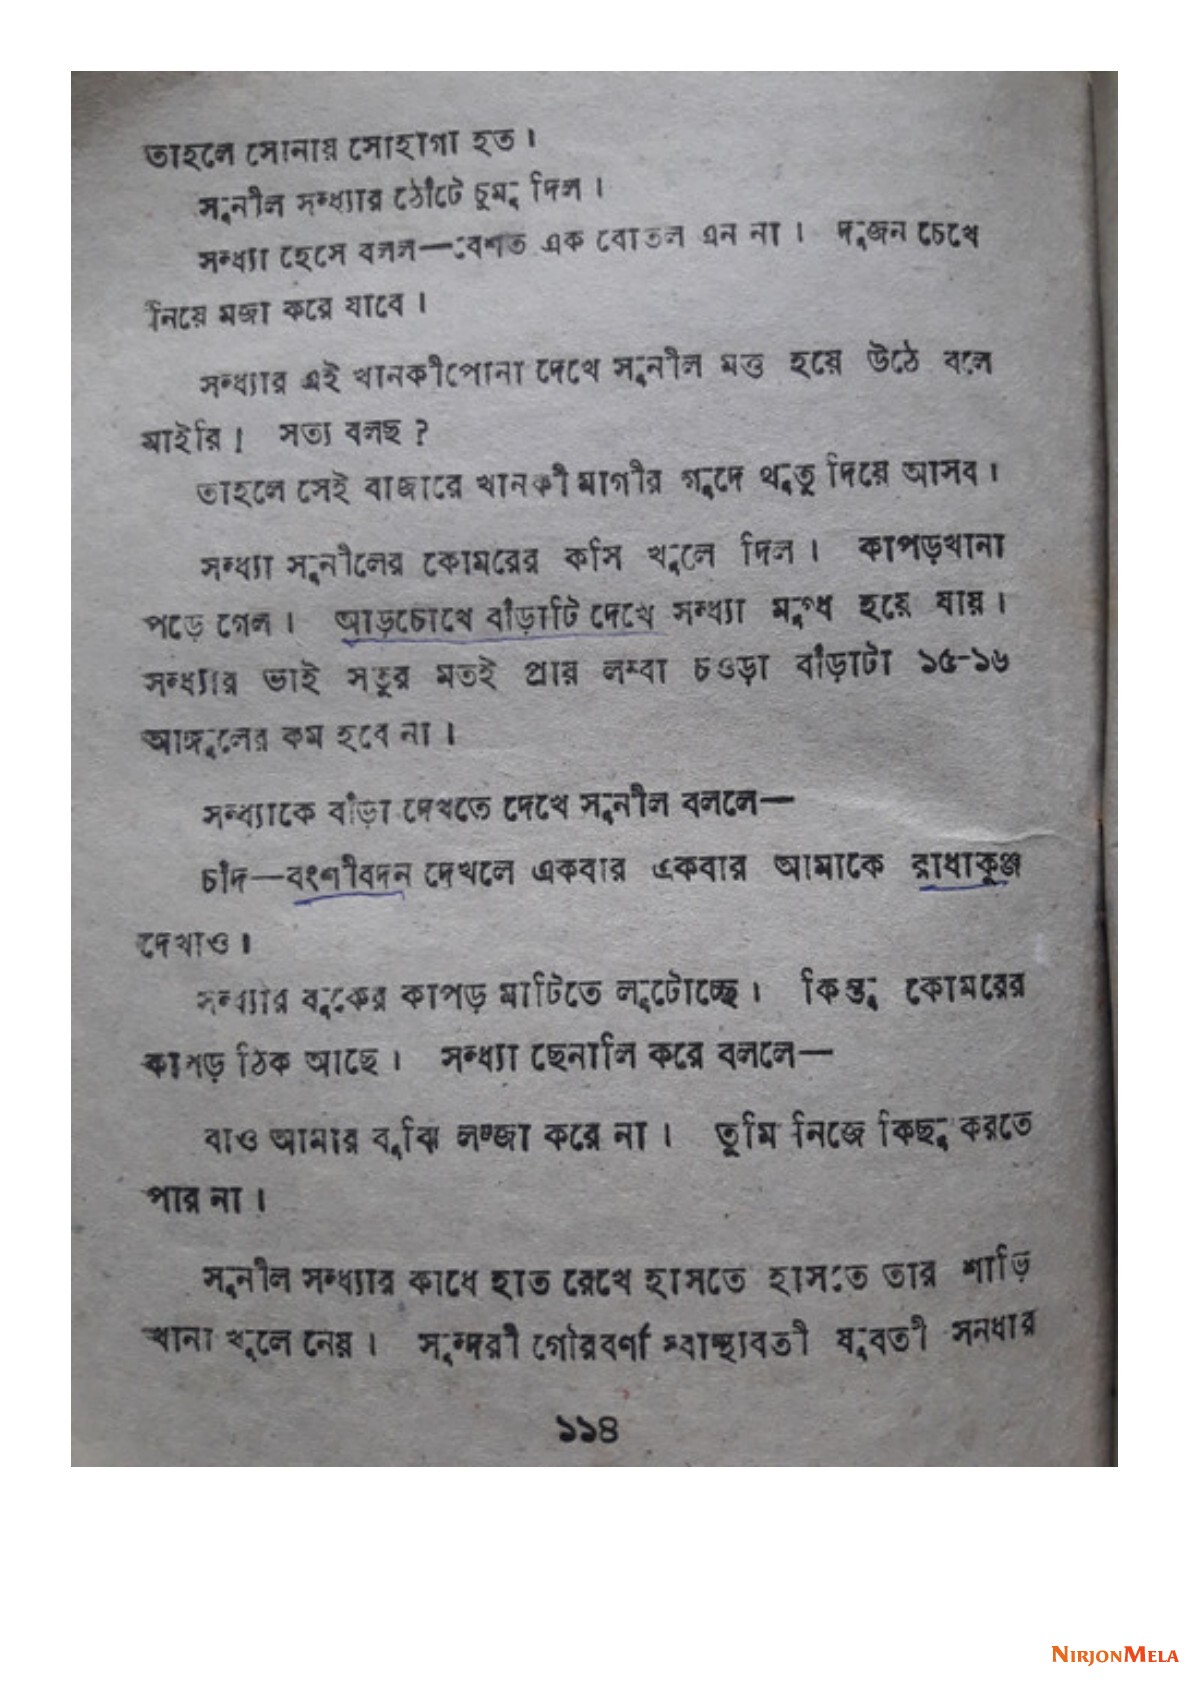 তাহলে সোনায় সোহাগা হত।
সুনীল সন্ধ্যার ঠোঁটে চুমু দিল।
সন্ধ্যা হেসে বলল—বেশত এক বোতল এন না। দুজন চেখে
নিয়ে মজা করে যাবে।
সন্ধ্যার এই খানকীপোনা দেখে সুনীল মত্ত হয়ে উঠে বলে
মাইরি! সত্য বলছ?
তাহলে সেই বাজারে খানকী মাগীর গুদে থুতু দিয়ে আসব।
সন্ধ্যা সুনীলের কোমরের কসি খুলে দিল। কাপড়খানা
পড়ে গেল। আড়চোখে বাঁড়াটি দেখে সন্ধ্যা মুগ্ধ হয়ে যায়।
সন্ধ্যার ভাই সতুর মতই প্রায় লম্বা চওড়া বাঁড়াটা ১৫-১৬
আঙ্গুলের কম হবে না।
সন্ধ্যাকে বাঁড়া দেখতে দেখে সুনীল বললে—
চাঁদ—বংশীবদন দেখলে একবার একবার আমাকে রাধাকুঞ্জ
দেখাও।
সন্ধ্যার বুকের কাপড় মাটিতে লুটোচ্ছে। কিন্তু কোমরের
কাপড় ঠিক আছে। সন্ধ্যা ছেনালি করে বললে—
বাও আমার বুঝি লজ্জা করে না। তুমি নিজে কিছু করতে
পার না।
সুনীল সন্ধ্যার কাধে হাত রেখে হাসতে হাসতে তার শাড়ি
খানা খুলে নেয়। সুন্দরী গৌরবর্ণা স্বাস্থ্যবতী যুবতী সনধার
১১৪
NIRJONMELA